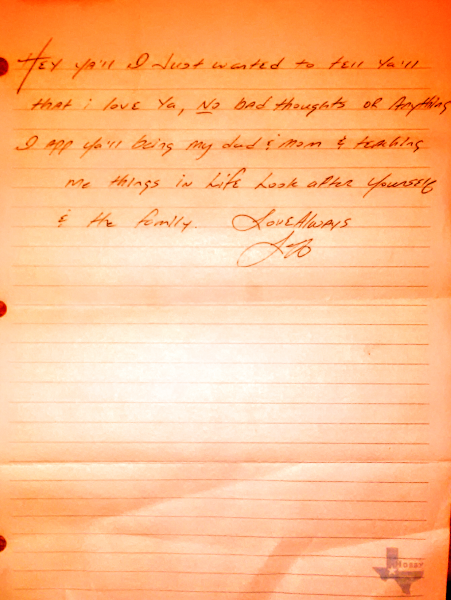 Hey ya'll I Just wanted to tell Ya'll
that i love Ya, No bad thoughts or Anything
I app ya'll being my dad & mom & teaching
me things in Life Look after Yourself
& the family. Love Always